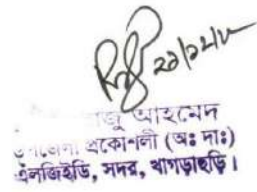 ২৯/১২/২
রাজু আহমেদ
উপজেলা প্রকৌশলী (অঃ দাঃ)
এলজিইডি, সদর, খাগড়াছড়ি।